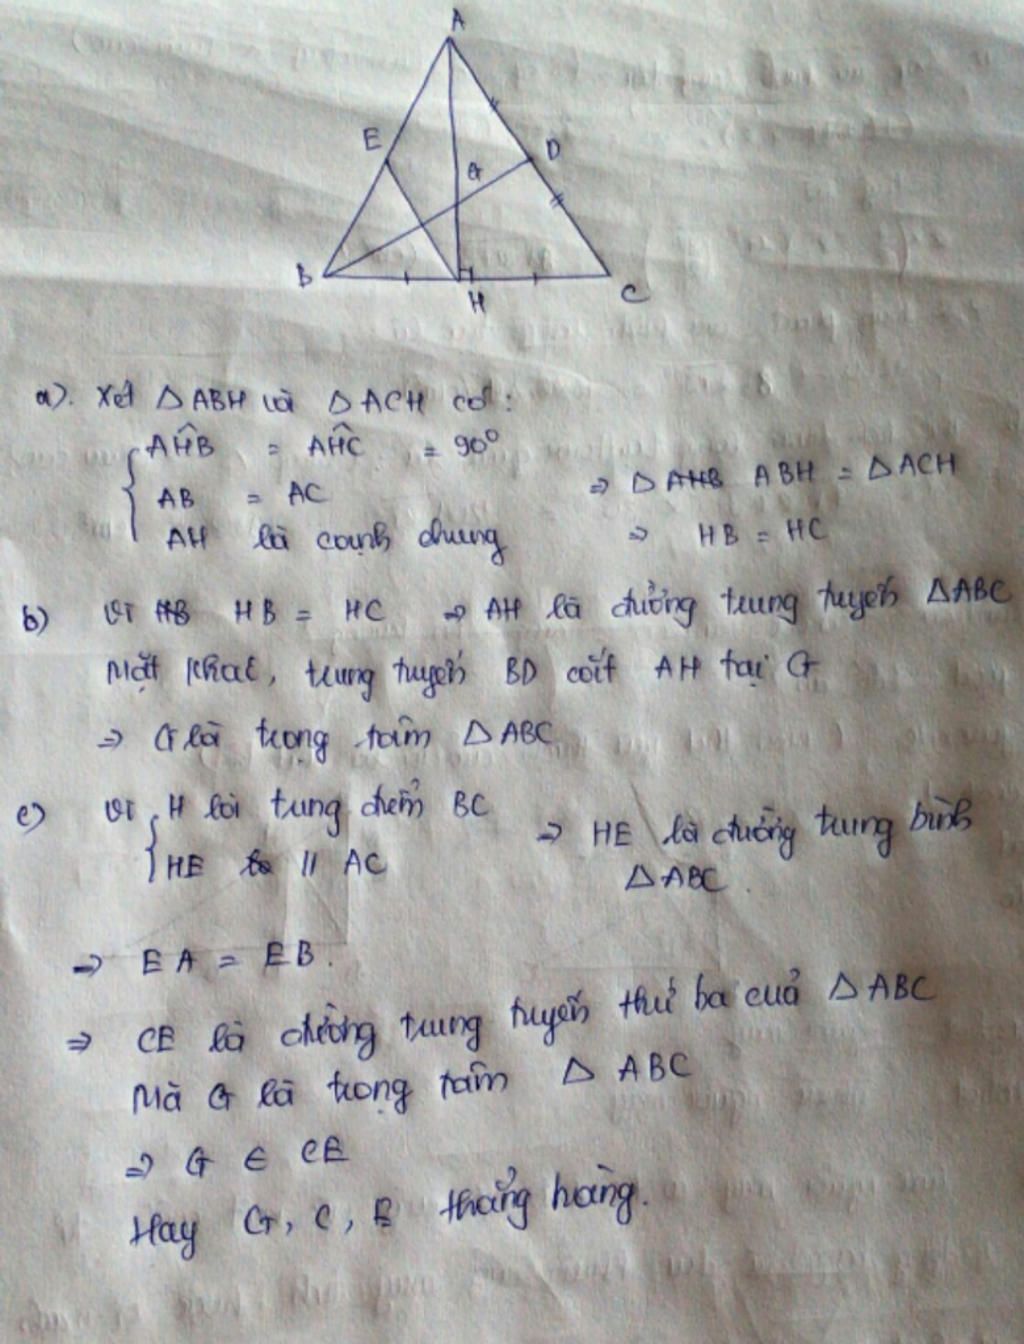 A
E
D
G
B
H
C
a). Xét △ABH và △ACH có:
AĤB = AĤC = 90°
AB = AC
AH là cạnh chung
⇒ △ AHB ABH = △ACH
⇒ HB = HC
b) Vì HB HB = HC ⇒ AH là đường trung tuyến △ABC
Mặt khác, trung tuyến BD cắt AH tại G
⇒ G là trọng tâm △ABC
c) Vì H là trung điểm BC
HE // AC
⇒ HE là đường trung bình
△ABC.
⇒ EA = EB.
⇒ CE là đường trung tuyến thứ ba của △ABC
Mà G là trọng tâm △ ABC
⇒ G ∈ CE
Hay G, C, E thẳng hàng.